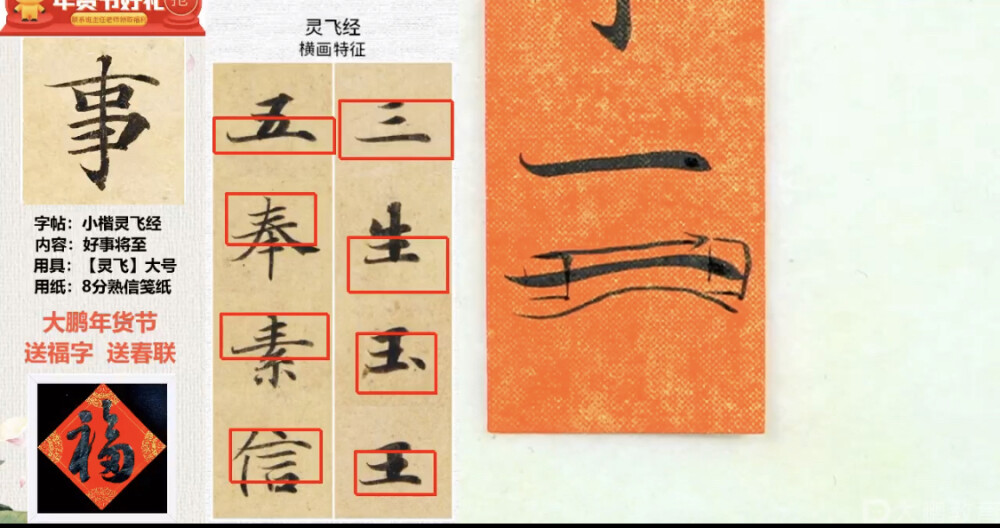 年货节好礼
抢
事
字帖：小楷灵飞经
内容：好事将至
用具：【灵飞】大号
用纸：8分熟信笺纸
大鹏年货节
送福字 送春联
福
灵飞经
横画特征
五 三
奉 生
素 玉
信 王